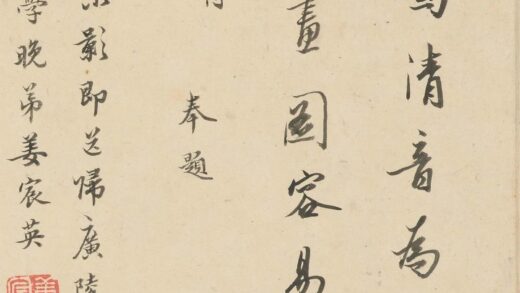 清音為
畫圖容易
奉題
影即送歸廣陵
學晚弟姜宸英